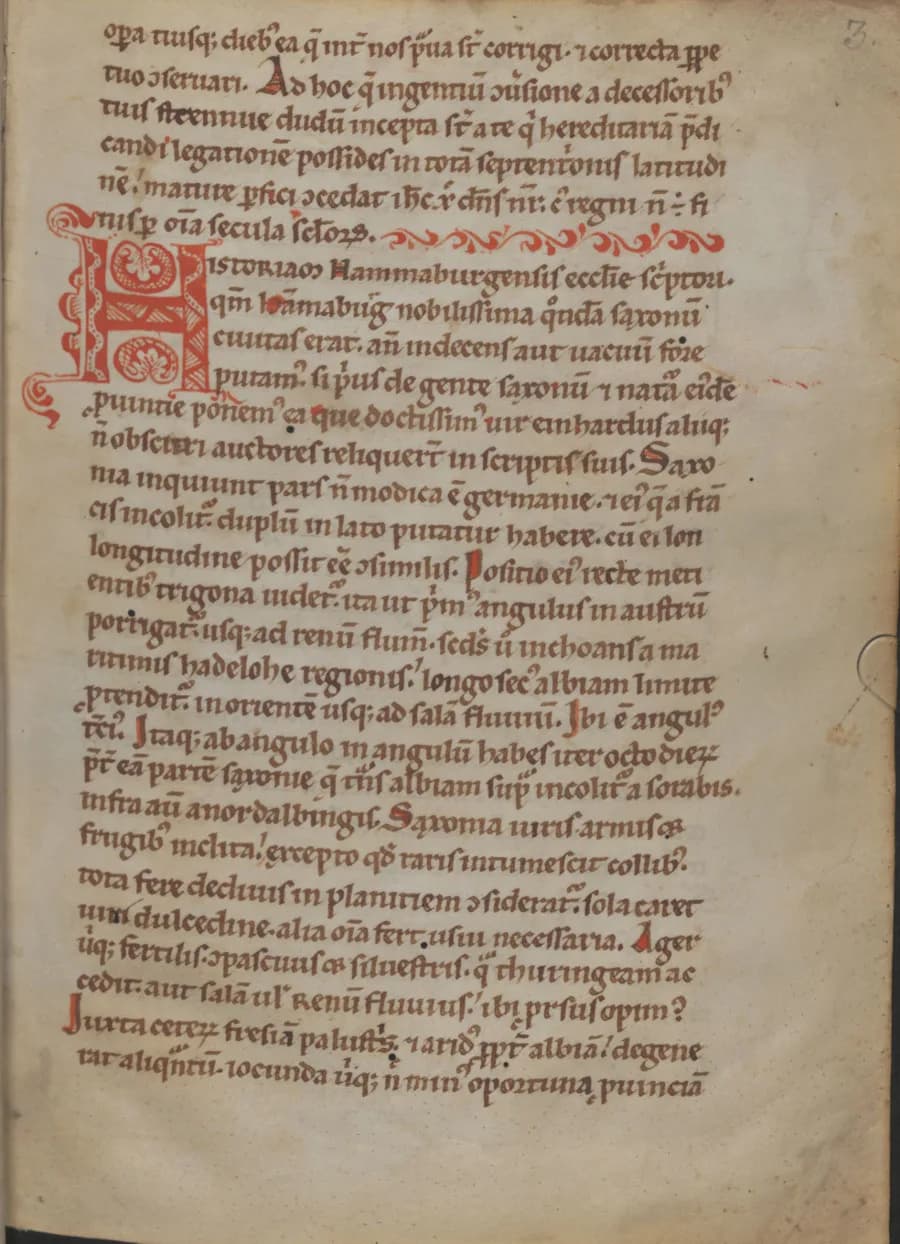 3.
oꝑa tuisq; dieb᾽ ea q̄ int̄ nos p̄ua st̄ corrigi· ⁊ correcta ꝑpe
tuo ↄseruari. Ad hoc q̄ ingentiū ↄuersione a decessorib᾽
tuis strennue dudū incepta st̄ a te qͥ hereditariā p̄di
candi legationē possides in totā septentͥonis latitudi
nē / mature ꝑfici ↄcedat ih̄c xp̄r dn̄s nr̄: cͥ regni n̄ ÷ fi
nis ꝑ oīa secula sc̄lorꝝ.
HISTORIAꝲ Hammaburgensis eccl̄ie scͥptori·
qm̄ hāmabug̃ nobilissima qͦndā saxonū
ciuitas erat. an̄ indecens aut uacuū fore
putam᾽. si pͥus de gente saxonū ⁊ natᷓa eiꝰdē
ꝓuintie ponem᾽ ea que doctissim᾽ uir einhardus aliiq;
n̄ obscuri auctores reliquer̄t in scriptis suis. Saxo
nia inquiunt pars n̄ modica ē germanie. ⁊ ei᾽ q̄ a frā
cis incolit᾽. duplū in lato putatur habere. cū ei lon
longitudine possit eē ↄsimilis. Positio ei᾽ recte meti
entib᾽ trigona uidet᾽. ita ut pͥm᾽ angulus in austrū
porrigat᾽. usq; ad renū flum̄. sc̄ds ū inchoans a ma
ritimis hadelohe regionis / longo sec᾽ albiam limite
ꝓtendit᾽. in orientē usq; ad salā fluuiū. Ibi ē angul᾽
tc̄i᾽. Itaq; ab angulo in angulū habes iter octo dierꝝ
p̄t̄ eā partē saxonie q̄ tn̄s albiam supᷓ incolit᾽ a sorabis.
infra aū a nordalbingis. Saxonia uiris armis ꝙ
frugib᾽ inclita / excepto qd̄ raris intumescit collib᾽.
tota fere decliuis in planitiem ↄsiderat᾽. sola caret
uini dulcedine. alia oīa fert usui necessaria. Ager
ūq; fertilis. ↄpascuus ꝙ siluestris. qᷓ thuringeam ac
cedit. aut salā ul᾽ Renū fluuius / ibi prsus opim᾽
Juxta ceterꝝ fresiā palustͥs. ⁊ arid᾽ ꝓpt̄ albiā / degene
rat aliqͣntū. iocunda ūq; n̄ min᾽ oportuna ꝓuinciā